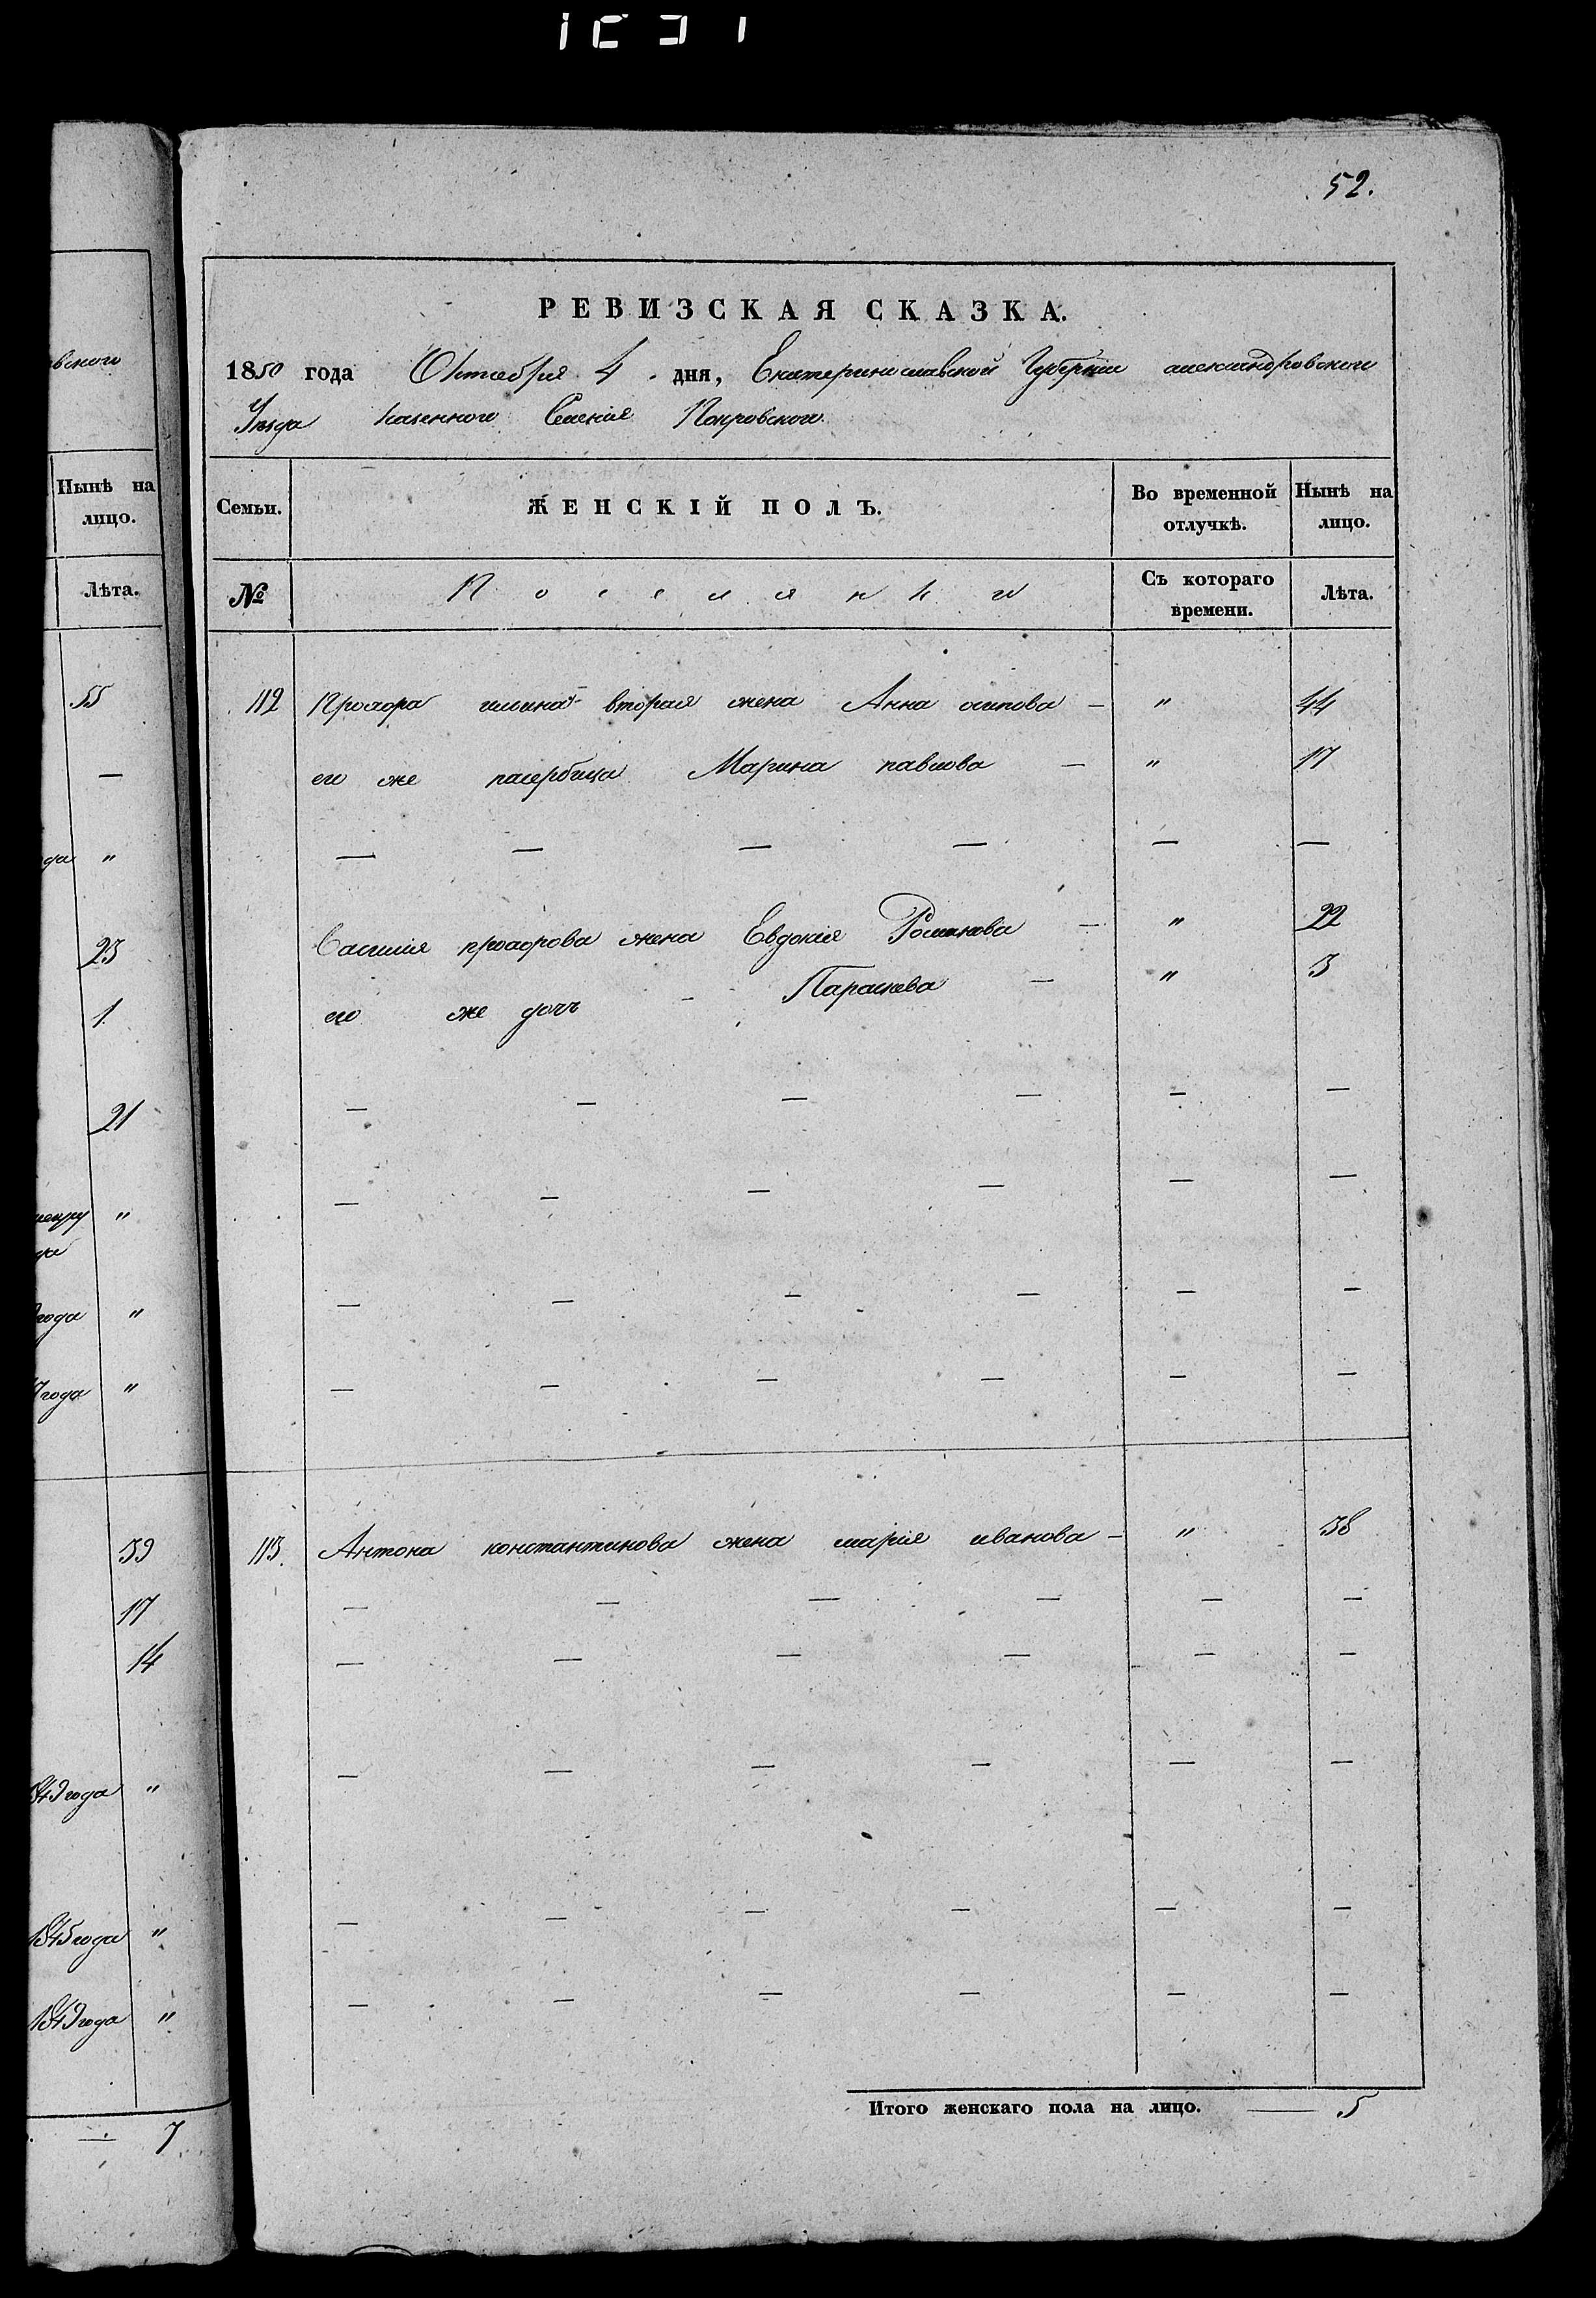 52.
вского
Нынѣ на
лицо.
Лѣта.
55
—
да "
23
1.
21
"
года "
7 года "
39
17
14
1849 года "
1845 года "
1849 года "
— 7
РЕВИЗСКАЯ СКАЗКА.
1850 года Октября 4 дня, Екатеринославской Губерніи александровского
Уѣзда казенного Селенія Покровского.
Семьи. ЖЕНСКІЙ ПОЛЪ. Во временной отлучкѣ. Нынѣ на лицо.
№ Поселянки Съ котораго времени. Лѣта.
112 Прохора ильина вторая жена Анна осипова — " 44
его же пасербица Марина павлова — " 17
— — — — — —
Василия прохорова жена Евдокия Романова — " 22
его же дочь - Параскева — " 3
— — — — — —
— — — — — —
— — — — — —
— — — — — —
113. Антона константинова жена мария иванова — " 38
— — — — — —
— — — — — —
— — — — — —
— — — — — —
— — — — — —
Итого женскаго пола на лицо. — 5